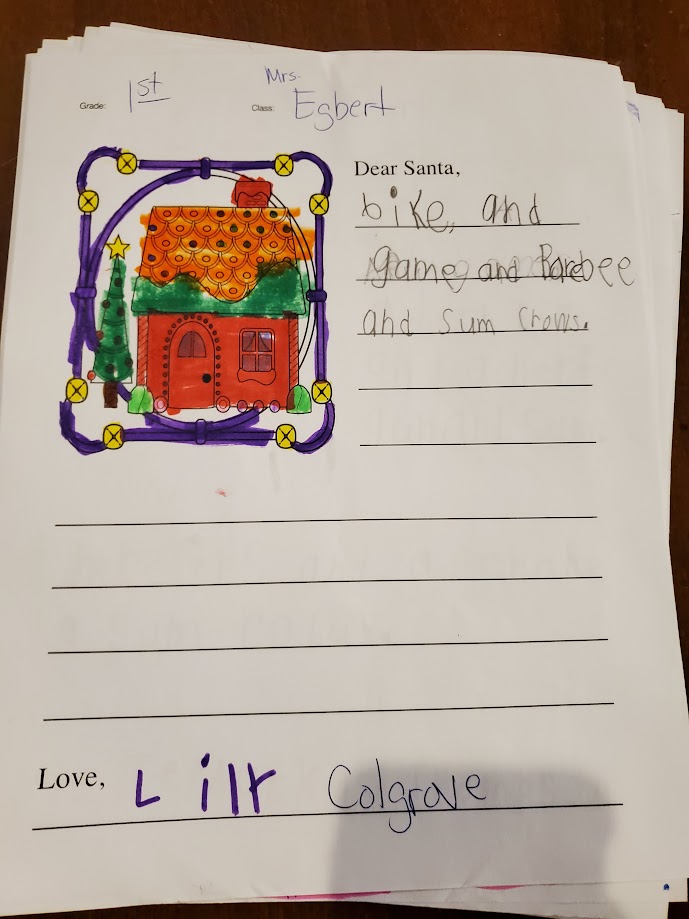 Grade: 1st
Class: Mrs. Egbert
Dear Santa,
bike, and
game, and Barebee
and sum crows.
Love, Lily Colgrove